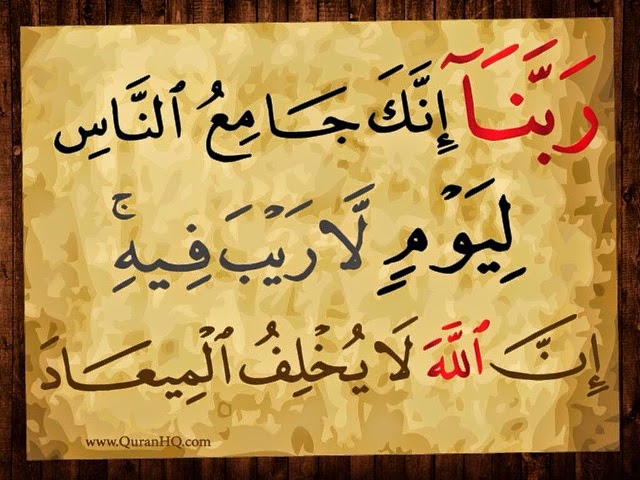 رَبَّنَآ إِنَّكَ جَامِعُ ٱلنَّاسِ
لِيَوْمٍ لَّا رَيْبَ فِيهِ ۚ
إِنَّ ٱللَّهَ لَا يُخْلِفُ ٱلْمِيعَادَ
www.QuranHQ.com